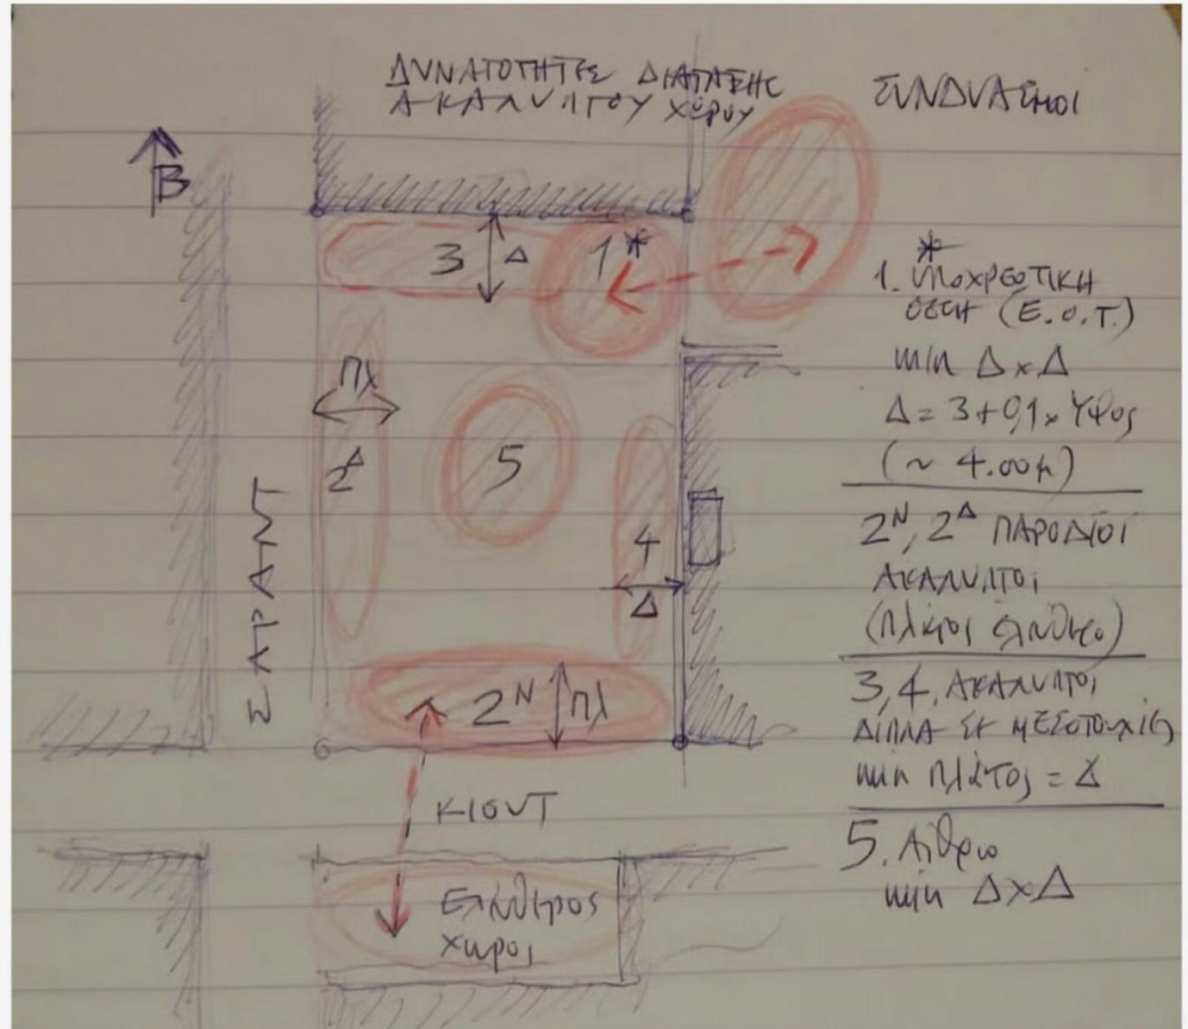 ΔΥΝΑΤΟΤΗΤΕΣ ΔΙΑΤΑΞΗΣ
ΑΚΑΛΥΠΤΟΥ ΧΩΡΟΥ
ΣΥΝΔΥΑΣΜΟΙ
Β
3
Δ
1*
πλ
2Δ
5
4
Δ
2Ν
πλ
ΣΑΡΑΝΤ
ΚΙΟΥΤ
Ελεύθερος
χώρος
*
1. ΥΠΟΧΡΕΩΤΙΚΗ
ΘΕΣΗ (Ε.Ο.Τ.)
min Δ x Δ
Δ = 3 + 0,1 x Ύψος
(~ 4.00μ)
2Ν, 2Δ ΠΑΡΟΔΙΟΙ
ΑΚΑΛΥΠΤΟΙ
(Πλάτος ελεύθερο)
3,4, ΑΚΑΛΥΠΤΟΙ
ΔΙΠΛΑ ΣΕ ΜΕΣΟΤΟΙΧΙΕΣ
min πλάτος = Δ
5. Αίθριο
min Δ x Δ